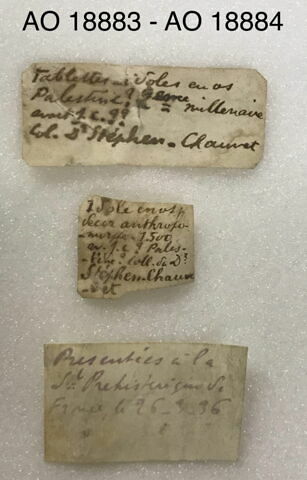 AO 18883 - AO 18884
Tablettes - idoles en os
Palestine? 2eme millenaire
avant J.C.??
Col. Dr Stephen-Chauvet
Idole en os
decor anthropo-
morphe 1500
av. J.C? Pales-
tine? Coll. du Dr
Stephen-Chauv
et
Presentées à la
Sté Prehistorique de
France, le 26 - 36